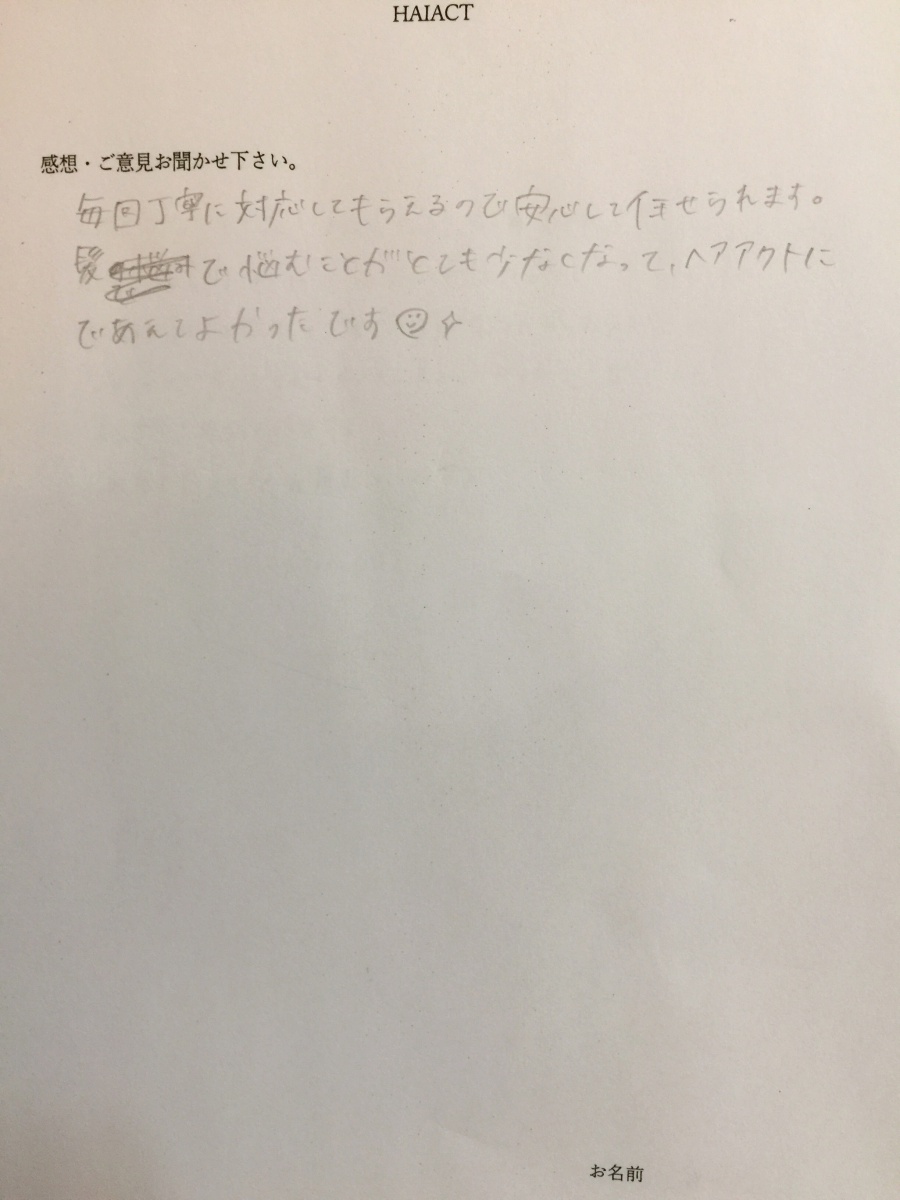 HAIACT
感想・ご意見お聞かせ下さい。
毎回丁寧に対応してもらえるので安心して任せられます。
髪で悩むことがとても少なくなって、ヘアアクトに
であえてよかったです
お名前